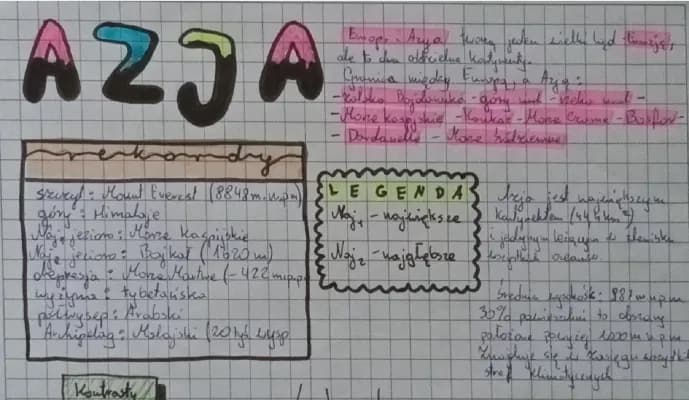 AZJA
Europa i Azja tworzą jeden wielki ląd
ale to dwa oddzielne kontynenty.
Granica między Europą, a Azją:
- góry Ural - rzeka Ural -
- Morze Kaspijskie - Morze Czarne - Bosfor -
- Dardanele - Morze Śródziemne
rekordy
szczyt: Mount Everest (8848 m n.p.m)
góry: Himalaje
Naj₁ jezioro: Morze Kaspijskie
Naj₂ jezioro: Bajkał (1620 m)
depresja: Morze Martwe (-422 m p.p.
wyżyna: tybetańska
półwysep: Arabski
Archipelag: Malajski (20 tyś wysp
LEGENDA
Naj₁ - największe
Naj₂ - najgłębsze
Azja jest największym
kontynentem (44 km²)
i jedynym leżącym w
wszystkich oceanów.
Średnia wysokość: m n.p.m
30% powierzchni to obszary
położone powyżej 1000 m n.p.m
Znajduje się w zasięgu wszystkich
stref klimatycznych
Kontrasty